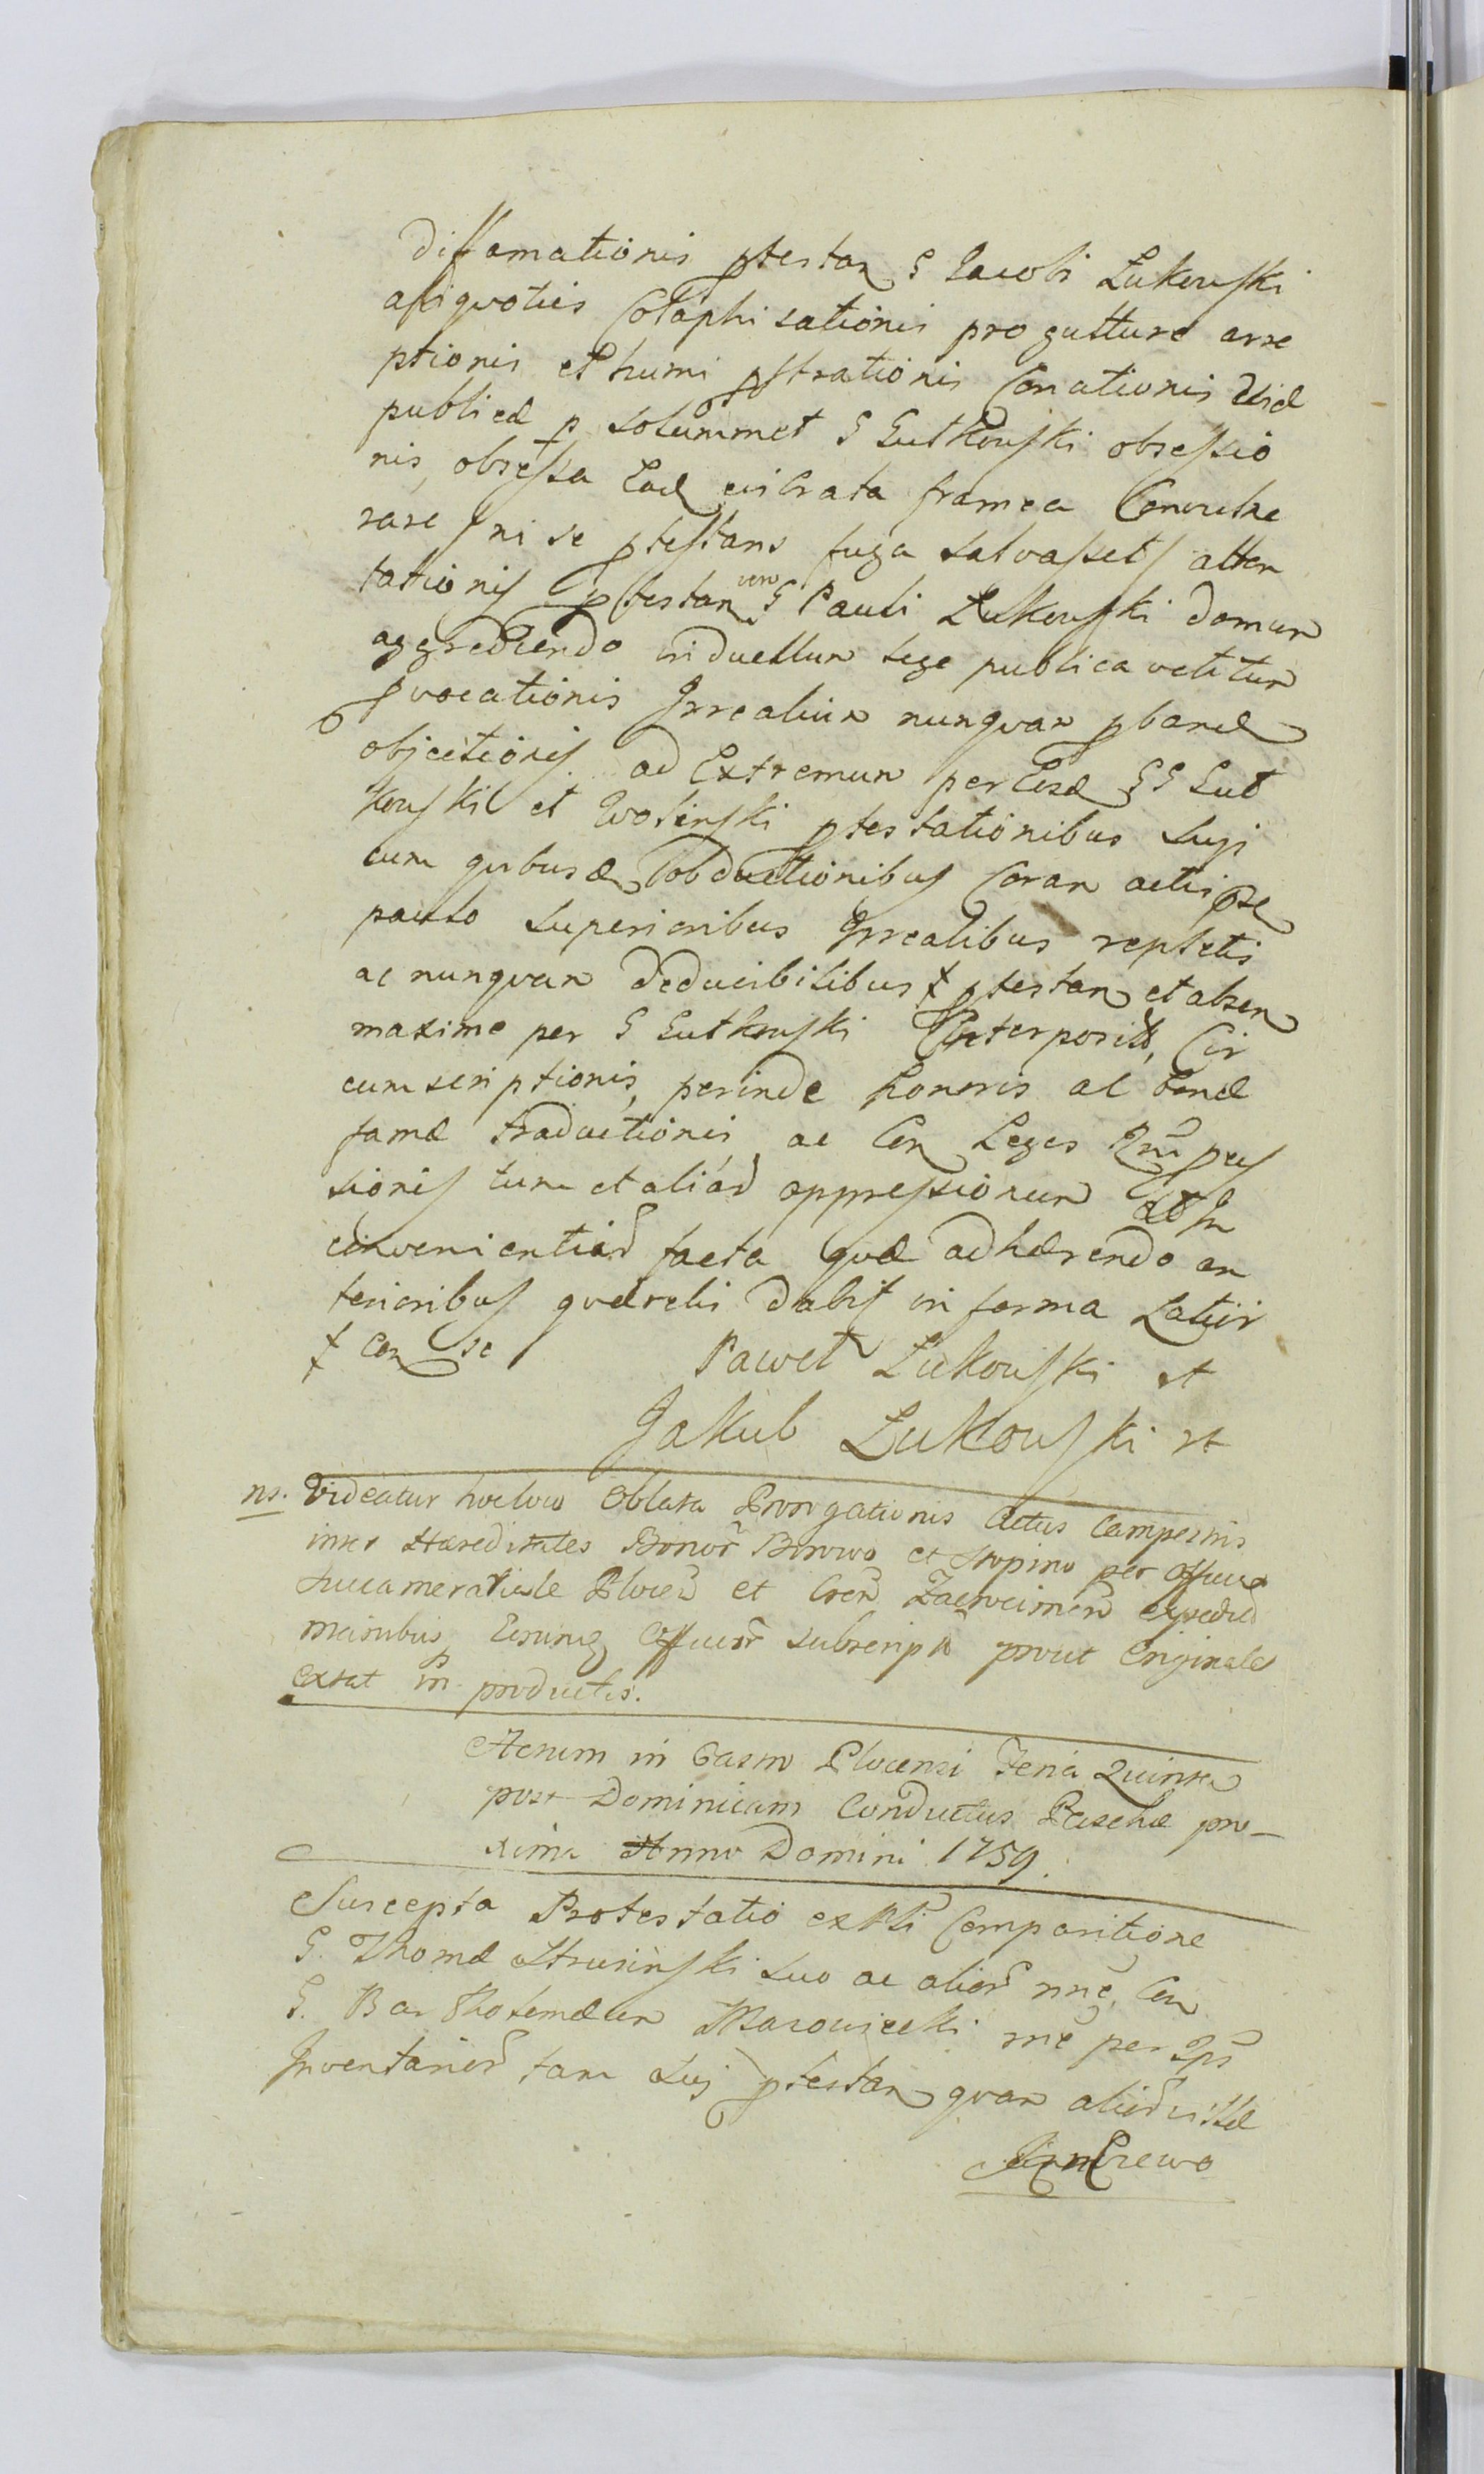 diffamationis ptestan G Jacobi Łukowski
aliquoties Colaphisationis pro gutture arre
ptionis et humi pstrationis Conationis viæ
publicæ p solummet G Gutkowski obsessio
nis, obsessa Ead evibrata framea Convulne
rare ni se ptestans fuga salvasset atten
tationis ptestan vero G Pauli Łukowski domum
aggrediendo in duellum lege publica vetitum
pvocationis Irrealium nunquam pband
objectionis ad Extremum per Eosd GG Gut
kowski et Wolinski ptestationibus suis
cum quibusd obductionibus Coram actis pse
paulo superioribus Irrealibus repletis
ac nunquam deducibilibus ꝉ ptestan et absen
maxime per G Gutkowski Interpositis, Cir
cumscriptionis, perinde honoris ac bonæ
famæ traductionis, ac Con Leges
sionis tum et aliar oppressionum
convenientiar facta quæ adhærendo an
terioribus quærelis dabit in forma Latiir
ꝉ con se
Paweł Łukowski et
Jakub Łukowski et
ns. Videatur hocloco Oblata Prorogationis Actus Campestris
inter Hæreditates Bonor Borowo et Stropino per Officia
Succamerariale Plocen et Cren Zacwecimen expedit
manubus Eorunq Officior subscripto prout Originale
extat in productis.
Actum in Castro Plocensi Feria Quinta
post Dominicam Conductus Paschæ pro-
xima Anno Domini 1759.
Suscepta Protestatio ex Psti Comparitione
G. Thomæ Strusinski suo ac alior nne, Con
G. Bartholomæum Mazowiecki nne per
Inventarior tam sui ptestan quam alior villæ